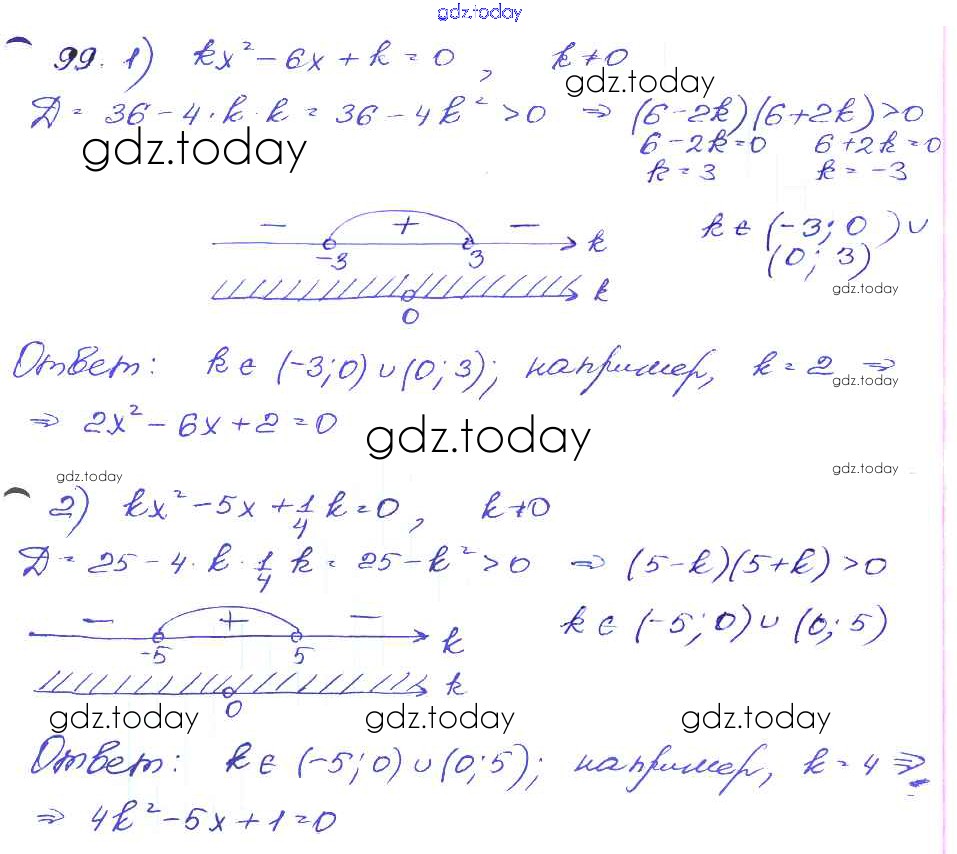 gdz.today
99. 1) kx² – 6x + k = 0, k ≠ 0
gdz.today
Д = 36 – 4 · k · k = 36 – 4k² > 0 ⇒ (6 – 2k)(6 + 2k) > 0
gdz.today
6 – 2k = 0 6 + 2k = 0
k = 3 k = –3
– + – k
–3 3
k ∈ (–3; 0) ∪
(0; 3)
gdz.today
k
0
Ответ: k ∈ (–3; 0) ∪ (0; 3); например, k = 2 ⇒
gdz.today
⇒ 2x² – 6x + 2 = 0
gdz.today
gdz.today
gdz.today
2) kx² – 5x + 1/4 k = 0, k ≠ 0
Д = 25 – 4 · k · 1/4 k = 25 – k² > 0 ⇒ (5 – k)(5 + k) > 0
– + – k
–5 5
k ∈ (–5; 0) ∪ (0; 5)
k
0
gdz.today gdz.today gdz.today
Ответ: k ∈ (–5; 0) ∪ (0; 5); например, k = 4 ⇒
⇒ 4k² – 5x + 1 = 0